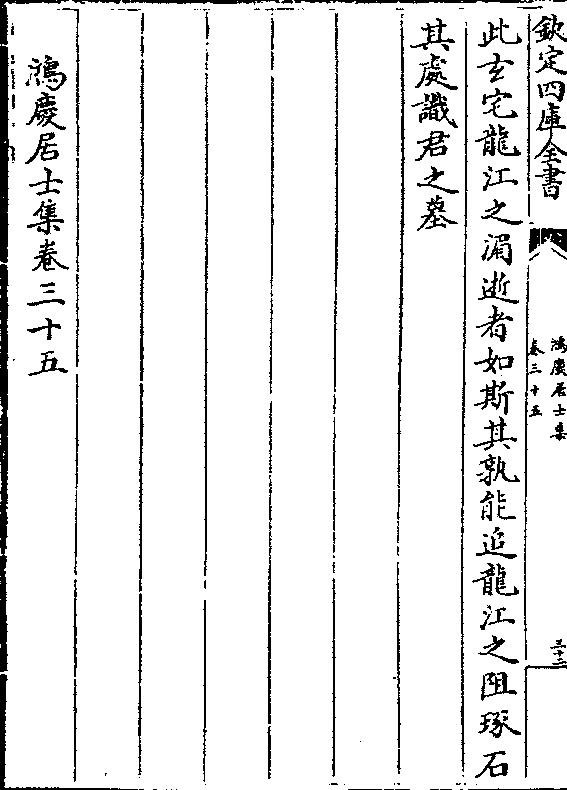 欽定四庫全書
鴻慶居士集
卷三十五
三十二
此玄宅龍江之湄逝者如斯其孰能追龍江之阻琢石
其處識君之墓
鴻慶居士集卷三十五